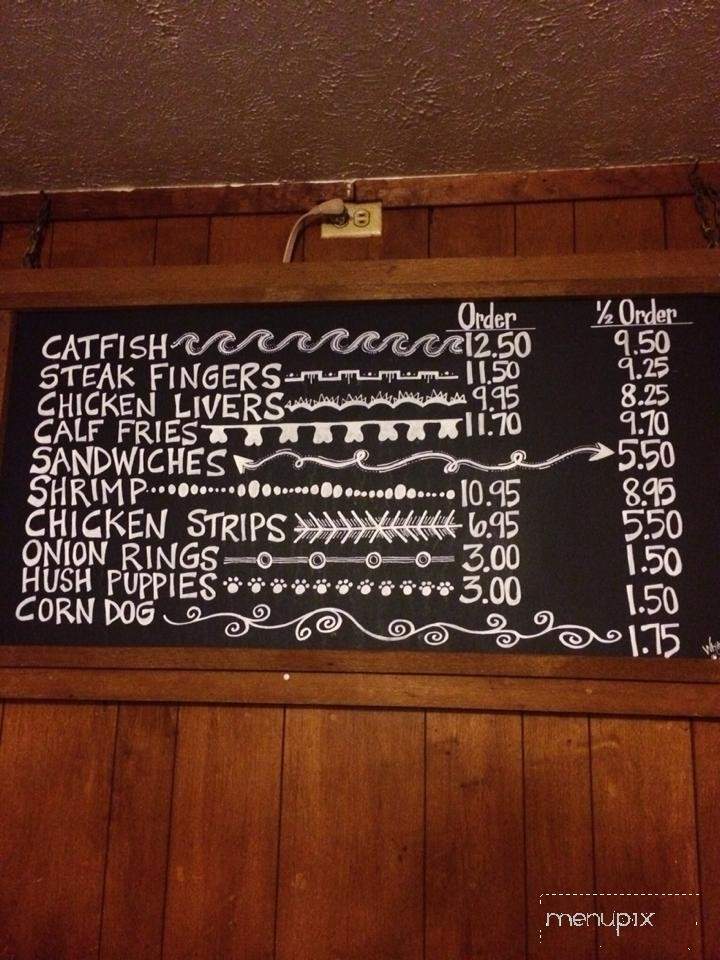 Order ½ Order
CATFISH 12.50 9.50
STEAK FINGERS 11.50 9.25
CHICKEN LIVERS 9.95 8.25
CALF FRIES 11.70 9.70
SANDWICHES 5.50
SHRIMP 10.95 8.95
CHICKEN STRIPS 6.95 5.50
ONION RINGS 3.00 1.50
HUSH PUPPIES 3.00 1.50
CORN DOG 1.75
menupix